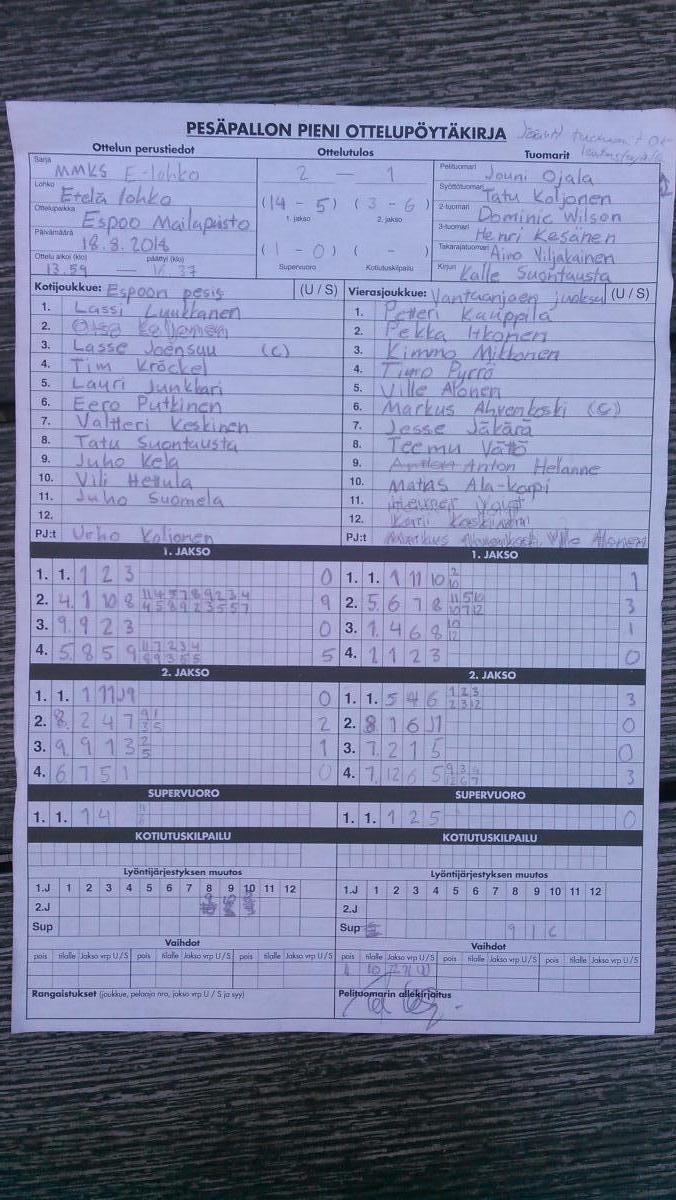 PESÄPALLON PIENI OTTELUPÖYTÄKIRJA
Ottelun perustiedot Ottelutulos Tuomarit
Sarja MMKS E-lohko
Lohko Etelä lohko
Ottelupaikka Espoo Mailapuisto
Päivämäärä 18.8.2014
Ottelu alkoi (klo) päättyi (klo)
13.59 — 16.37
2 — 1
(14 - 5) (3 - 6)
1. jakso 2. jakso
(1 - 0) ( - )
Supervuoro Kotiutuskilpailu
Pelituomari Jouni Ojala
Syöttötuomari Tatu Koljonen
2-tuomari Dominic Wilson
3-tuomari Henri Kesänen
Takarajatuomari Aino Viljakainen
Kirjuri Kalle Suontausta
Kotijoukkue: Espoon pesis (U / S)
1. Lassi Luukkanen
2. Otso Koljonen
3. Lasse Joensuu (C)
4. Tim Kröckel
5. Lauri Junkkari
6. Eero Putkinen
7. Valtteri Keskinen
8. Tatu Suontausta
9. Juho Kela
10. Vili Hetula
11. Juho Suomela
12.
PJ:t Urho Koljonen
Vierasjoukkue: Vantaanjoen juoksu (U / S)
1. Petteri Kauppila
2. Pekka Itkonen
3. Kimmo Mikkonen
4. Timo Pyrrö
5. Ville Alonen
6. Markus Ahvenkoski (C)
7. Jesse Jäkärä
8. Teemu Vättö
9. Anton Helanne
10. Matias Ala-Korpi
11.
12.
PJ:t Markus Ahvenkoski, Ville Alonen
1. JAKSO
1. 1. 1 2 3 0
2. 4. 1 10 8 9
3. 9. 9 2 3 0
4. 5. 8 5 9 5
2. JAKSO
1. 1. 1 11 9 0
2. 8. 2 4 7 2
3. 9. 9 1 3 2 5 1
4. 6. 7 5 1 0
SUPERVUORO
1. 1. 1 4
KOTIUTUSKILPAILU
1. JAKSO
1. 1. 1 11 10 2 10 1
2. 5. 6 7 8 11 5 10 10 7 12 3
3. 1. 4 6 8 10 12 1
4. 1 1 2 3 0
2. JAKSO
1. 1. 5 4 6 1 2 3 2 3 12 3
2. 8 1 6 11 0
3. 7. 2 1 5 0
4. 7. 12 6 5 3
SUPERVUORO
1. 1. 1 2 5 0
KOTIUTUSKILPAILU
Lyöntijärjestyksen muutos
1.J 1 2 3 4 5 6 7 8 9 10 11 12
2.J
Sup
Vaihdot
pois tilalle Jakso vrp U / S pois tilalle Jakso vrp U / S pois tilalle Jakso vrp U / S
Rangaistukset (joukkue, pelaaja nro, jakso vrp U / S ja syy)
Lyöntijärjestyksen muutos
1.J 1 2 3 4 5 6 7 8 9 10 11 12
2.J
Sup 9 1
Vaihdot
pois tilalle Jakso vrp U / S pois tilalle Jakso vrp U / S pois tilalle Jakso vrp U / S
Pelituomarin allekirjoitus